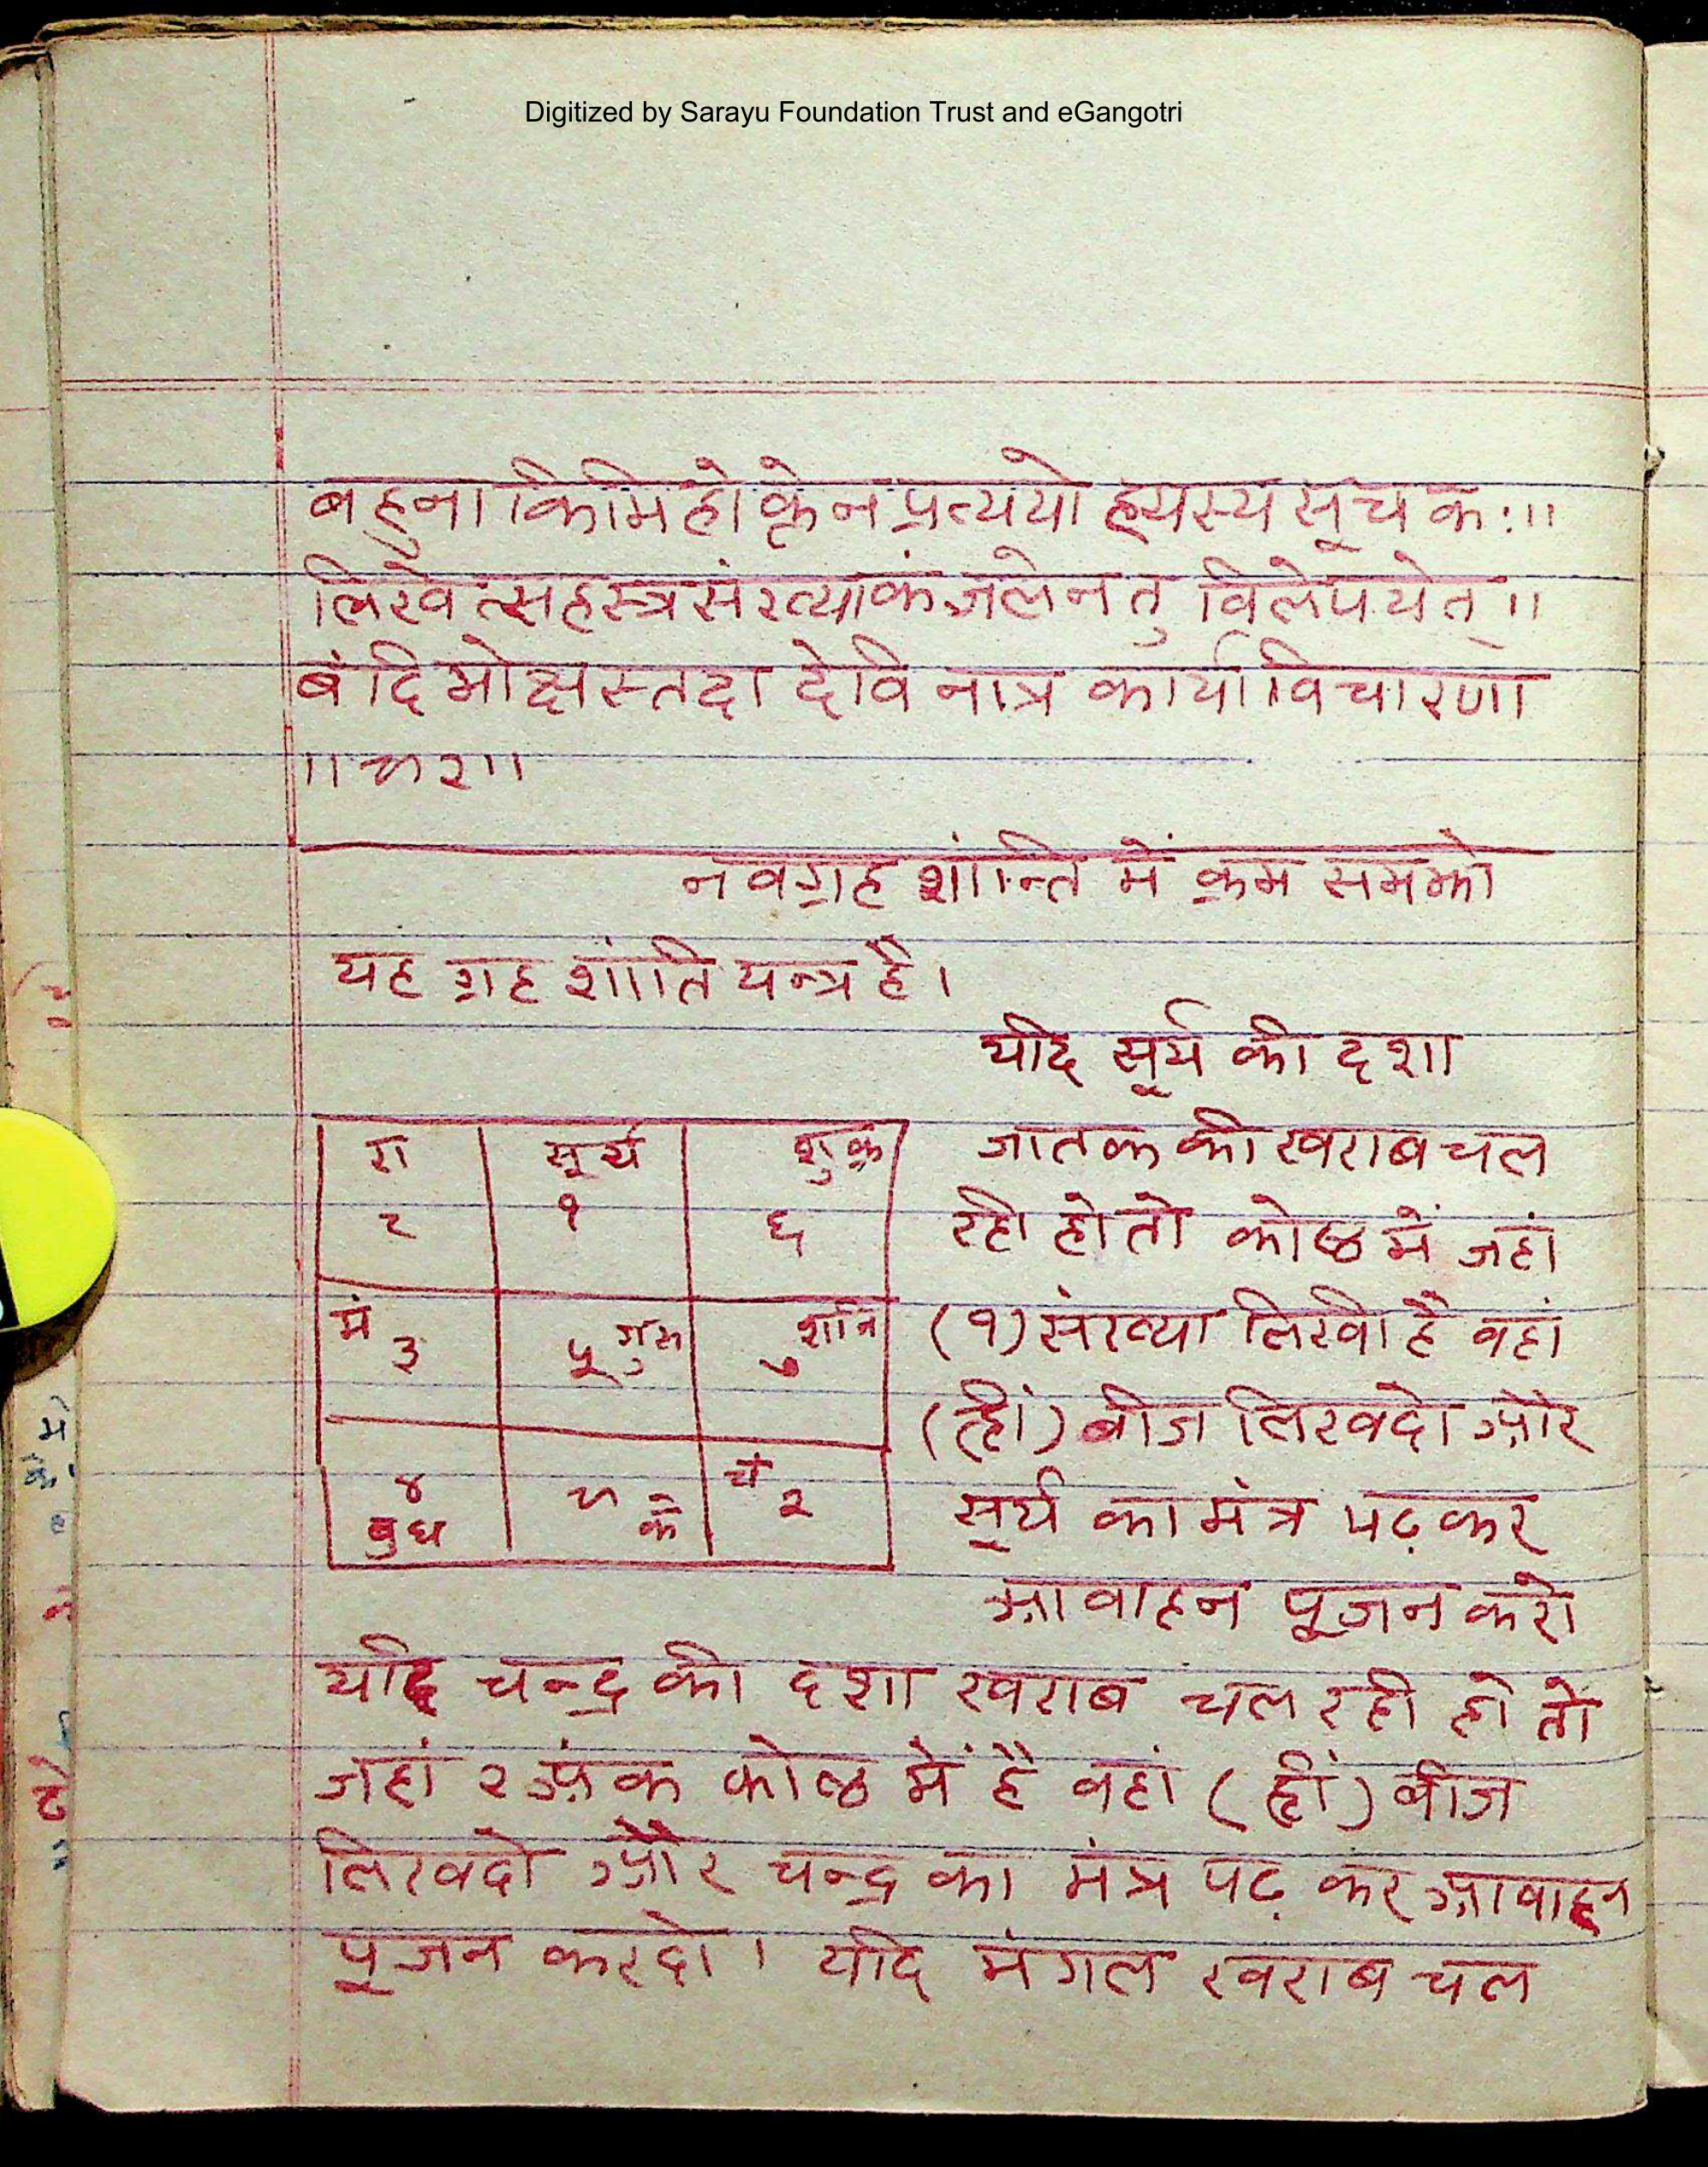 Digitized by Sarayu Foundation Trust and eGangotri
बहुना किमिहोक्तेन प्रत्ययो ह्यस्य सूचकः।।
लिखेत्सहस्त्र संख्याकं जलेन तु विलेपयेत्।।
बंदि मोक्षस्तदा देवि नात्र कार्या विचारणा
नवग्रह शांन्ति में क्रम समझो
यह ग्रह शांति यन्त्र है।
यदि सूर्य की दशा
रा सूर्य शुक्र जातक की खराब चल
८ १ ६ रही हो तो कोष्ठ में जहां
मं ३ ५ गुरु ७ शनि (१) संख्या लिखी है वहां
(ह्रीं) बीज लिखदो और
४ ९ के चं २ सूर्य का मंत्र पढ़कर
बुध
आवाहन पूजन करो
यदि चन्द्र की दशा खराब चल रही हो तो
जहां २ अंक कोष्ठ में है वहां (ह्रीं) बीज
लिखदो और चन्द्र का मंत्र पढ़ कर आवाहन
पूजन करदो। यदि मंगल खराब चल